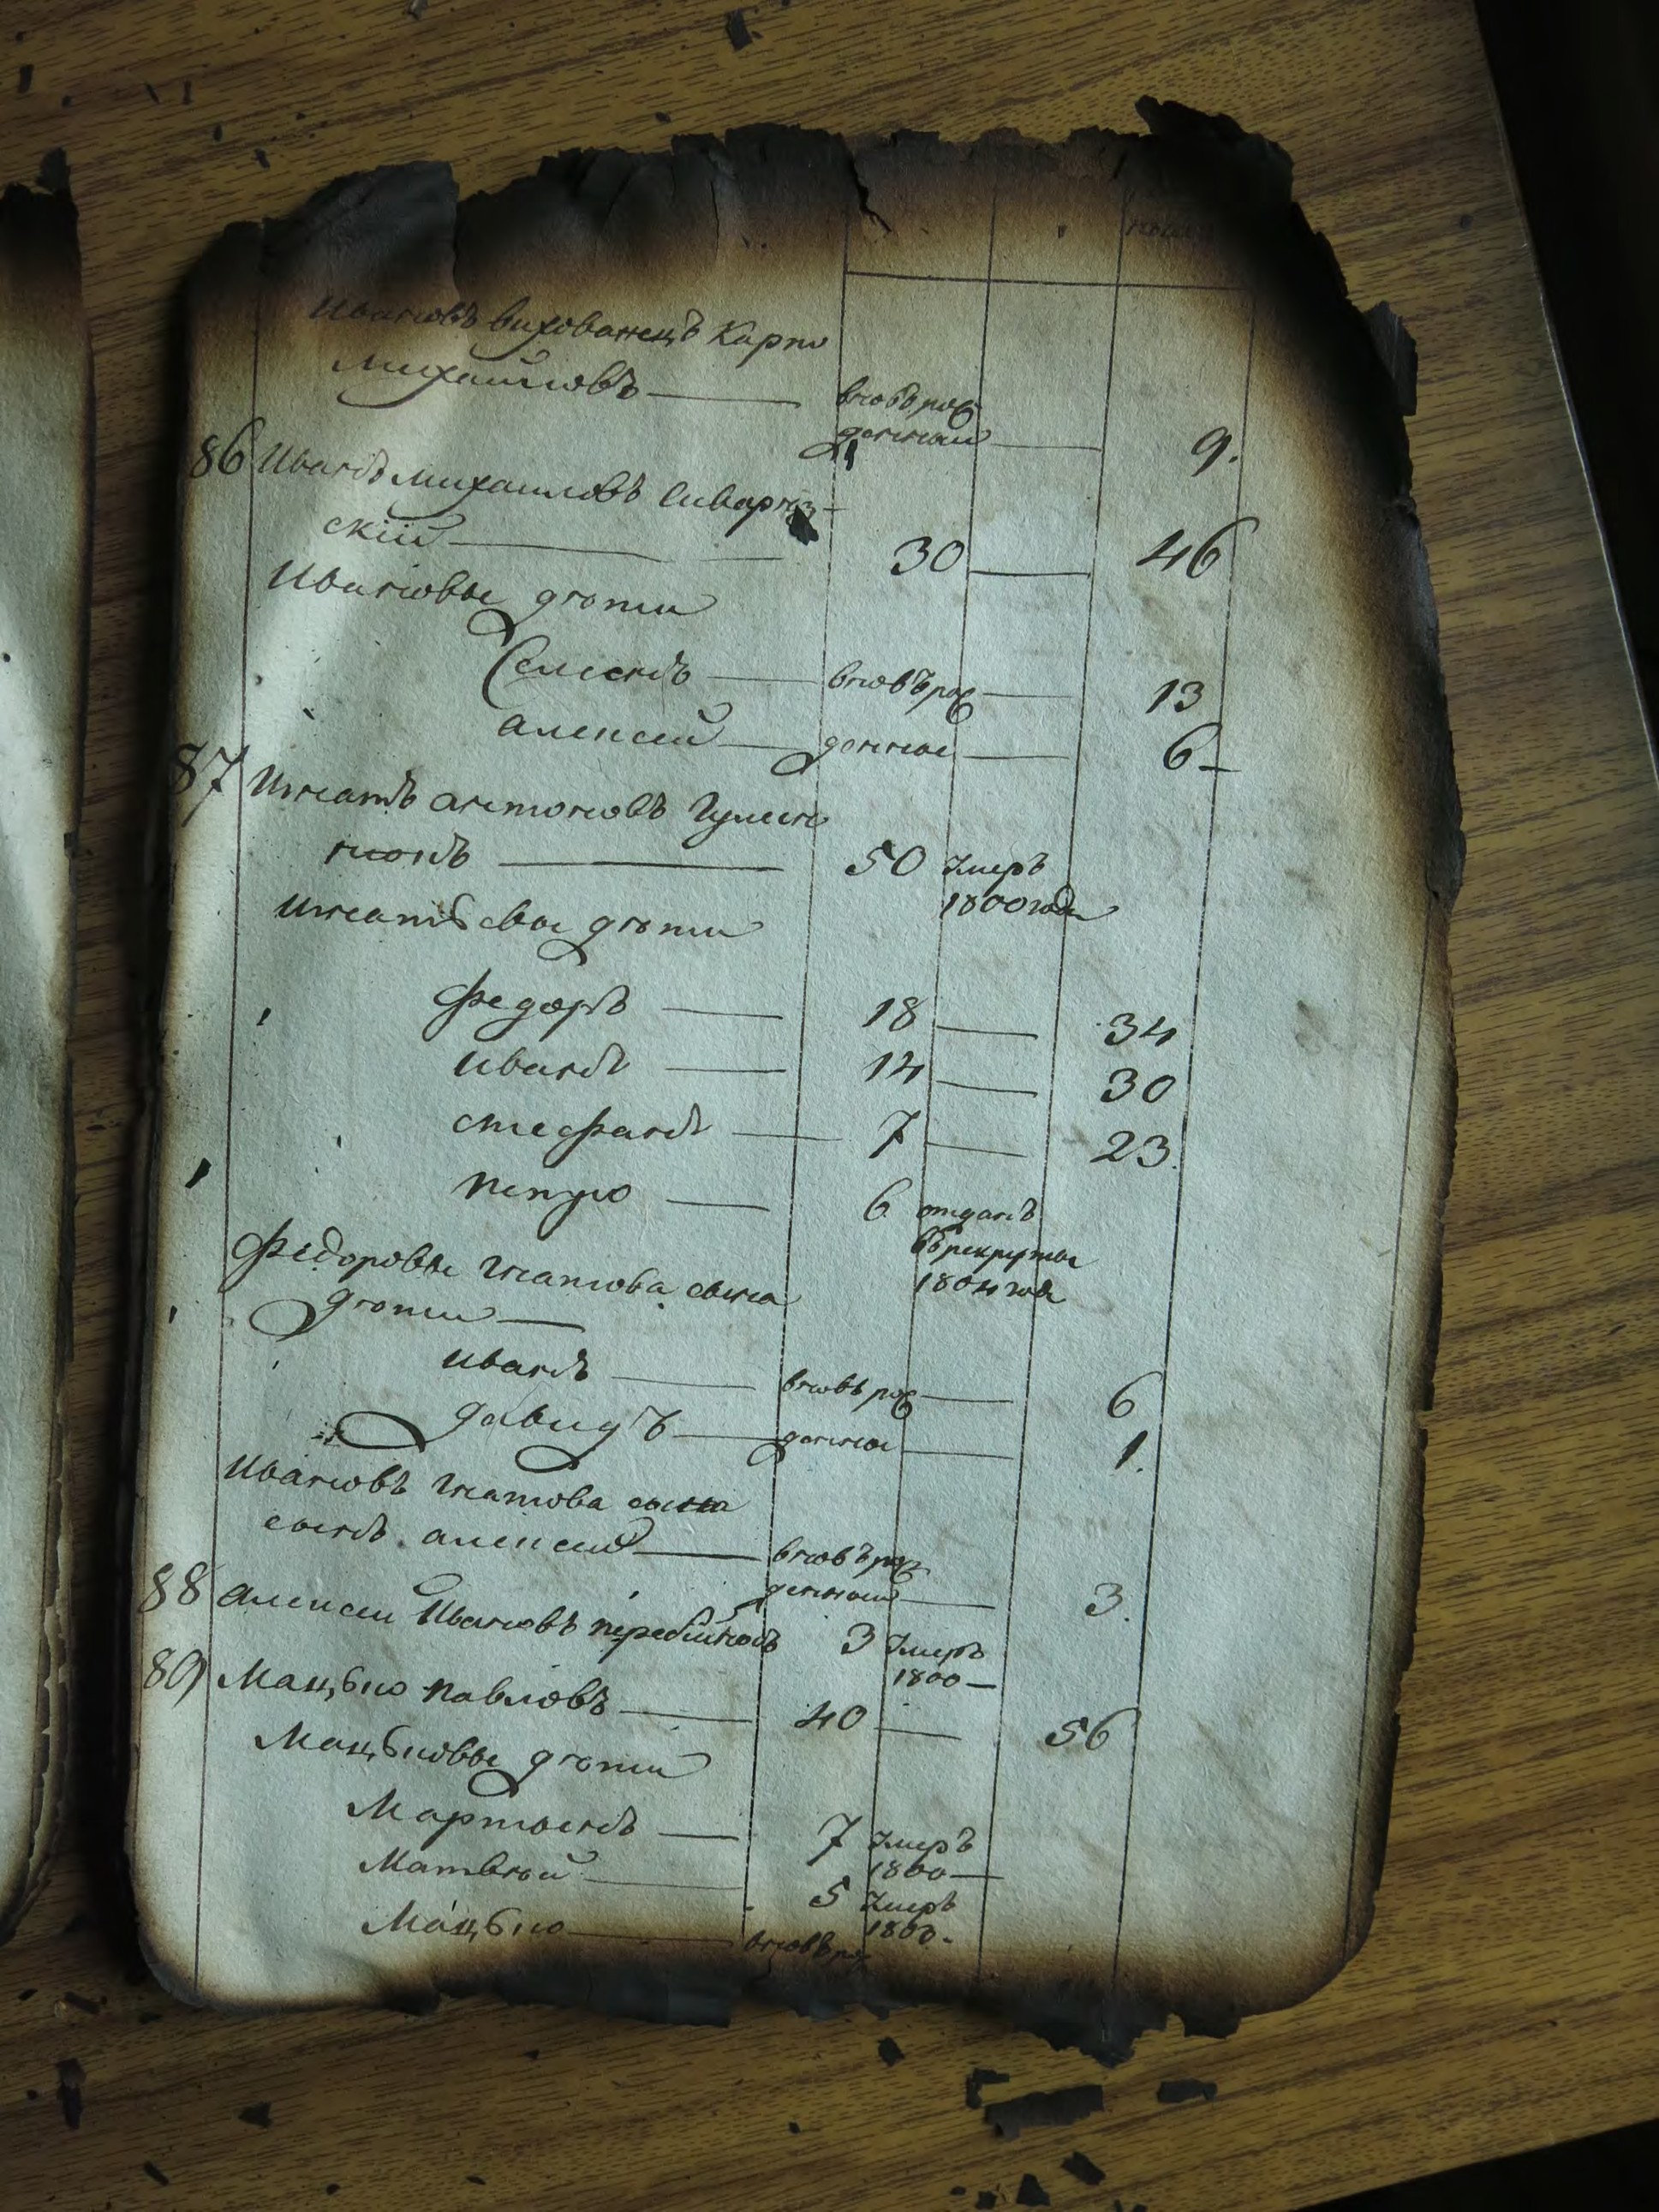 Ивановъ вихованецъ Карпо
Михайловъ — вновь рож
денной — 9.
86 Иванъ Михаиловъ
скій — 30 — 46
Ивановы дѣти
Семенъ — вновь рож — 13
Алексей — денные — 6
87 Игнатъ Антоновъ Гулен
нокъ — 50 умеръ
1800 года
Игнатьевы дѣти
Федоръ — 18 — 34
Иванъ — 14 — 30
Стефанъ — 7 — 23.
Петро — 6 отданъ
въ рекруты
1804 года
Федоровы Игнатова сына
дѣти —
Иванъ — вновь рож — 6
Давидъ — денные — 1.
Ивановъ Игнатова сына
сынъ Алексей — вновь рож
денной — 3.
88 Алексей Ивановъ перебійносъ 3 умеръ
1800 —
89 Мацько Павловъ — 40 — 56
Мацьковы дѣти
Мартынъ — 7 умеръ
1800 —
Матвѣй — 5 умеръ
1803.
Мацько — вновь рож